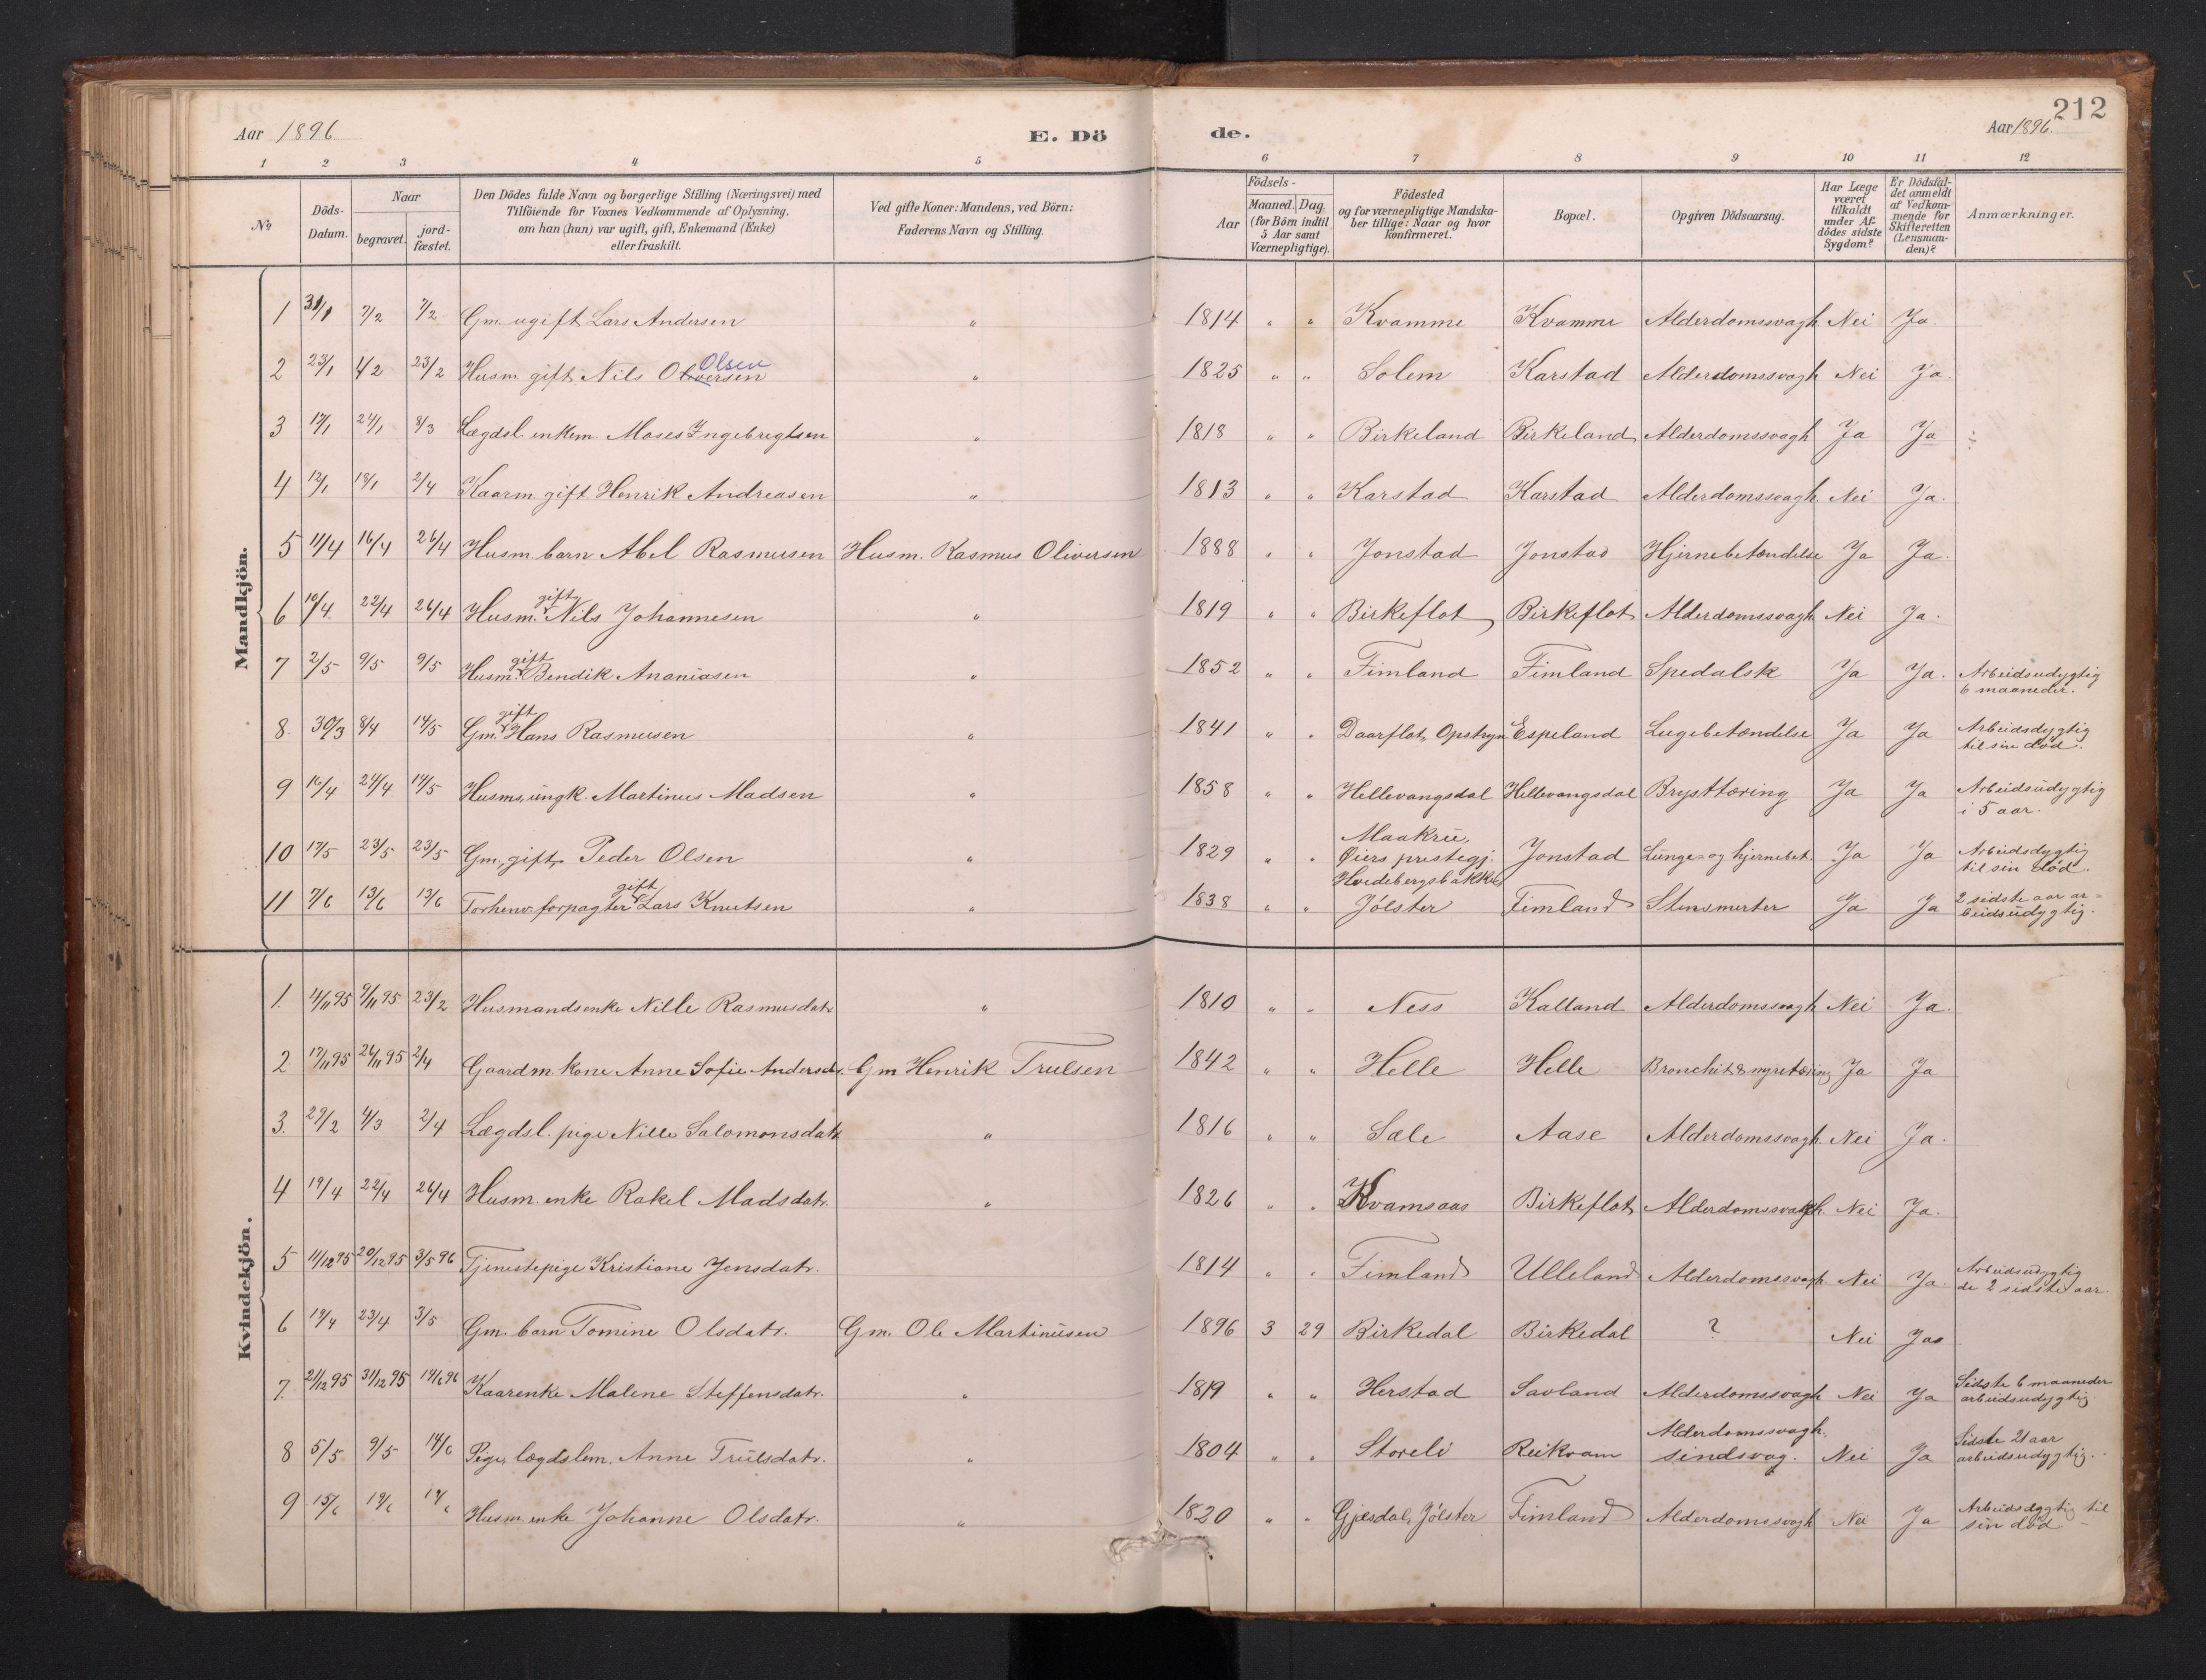 212
Aar 1896
E. Dö de.
Aar 1896.
1 2 3 4 5 6 7 8 9 10 11 12
No
Döds-Datum.
Naar
begravet.
jord-fæstet.
Den Dödes fulde Navn og borgerlige Stilling (Næringsvei) med
Tilföiende for Voxnes Vedkommende af Oplysning,
om han (hun) var ugift, gift, Enkemand (Enke)
eller fraskilt.
Ved gifte Koner: Mandens, ved Börn:
Faderens Navn og Stilling.
Födsels-
Aar
Maaned. Dag.
(for Börn indtil
5 Aar samt
Værnepligtige).
Födested
og for værnepligtige Mandska-
ber tillige: Naar og hvor
konfirmeret.
Bopæl.
Opgiven Dödsaarsag.
Har Læge
været
tilkaldt
under Af-
dödes sidste
Sygdom?
Er Dödsfal-
det anmeldt
af Vedkom-
mende for
Skifteretten
(Lensman-
den)?
Anmærkninger.
Mandkjön.
1 31/1 7/2 7/2 Gm. ugift Lars Andersen " 1814 " " Kvamme Kvamme Alderdomssvagh. Nei Ja.
Olsen
2 23/1 4/2 23/2 Husm. gift Nils Oliversen " 1825 " " Solem Karstad Alderdomssvagh Nei Ja.
3 17/1 24/1 8/3 Lægdsl. enkem. Moses Ingebrigtsen " 1818 " " Birkeland Birkeland Alderdomssvagh Ja Ja
4 12/1 18/1 2/4 Kaarm. gift Henrik Andreasen " 1813 " " Karstad Karstad Alderdomssvagh. Nei Ja.
5 11/4 16/4 26/4 Husm. barn Abel Rasmusen Husm. Rasmus Oliversen 1888 " " Jonstad Jonstad Hjernebetændelse Ja Ja.
gift
6 10/4 22/4 26/4 Husm. Nils Johannesen " 1819 " " Birkeflot Birkeflot Alderdomssvagh. Nei Ja.
gift
7 2/5 9/5 9/5 Husm. Bendik Ananiasen " 1852 " " Fimland Fimland Spedalsk Ja Ja. Arbeidsudygtig
6 maaneder.
gift
8. 30/3 8/4 14/5 Gm. Hans Rasmusen " 1841 " " Daarflot, Opstryn Espeland Lugebetændelse Ja Ja Arbeidsdygtig
til sin död.
9 16/4 24/4 14/5 Husms. ungk. Martinus Madsen " 1858 " " Hellevangsdal Hellevangsdal Brysttæring Ja Ja Arbeidsudygtig
i 5 aar.
Maakrie,
10 17/5 23/5 23/5 Gm., gift, Peder Olsen " 1829 " " Øiers prestegj. Jonstad Lunge- og hjernebet. Ja Ja Arbeidsdygtig
til sin död.
gift
Hvidebergsbakken
11 7/6 13/6 13/6 Forhenv. forpagter Lars Knutsen " 1838 " " Jölster Fimland Stensmerter Ja Ja 2 sidste aar ar-
beidsudygtig.
Kvindekjön.
1. 4/11 95 9/11 95 23/2 Husmandsenke Nille Rasmusdatr. " 1810 " " Ness Kalland Alderdomssvagh Nei Ja.
2 17/11 95 24/11 95 2/4 Gaardm. kone Anne Sofie Andersdr. Gm Henrik Trulsen 1842 " " Helle Helle Bronchit & nyretæring Ja Ja
3. 27/2 4/3 2/4 Lægdsl. pige Nille Salomonsdatr " 1816 " " Sæle Aase Alderdomssvagh. Nei Ja.
4 19/4 22/4 26/4 Husm. enke Rakel Madsdatr. " 1826 " " Kvamsaas Birkeflot Alderdomssvagh. Nei Ja.
5 11/12 95 20/12 95 3/5 96 Tjenestepige Kristiane Jensdatr. 1814 " " Fimland Ulleland Alderdomssvagh. Nei Ja. Arbeidsudygtig
de 2 sidste aar.
6 19/4 23/4 3/5 Gm. barn Tomine Olsdatr. Gm. Ole Martinusen 1896 3 29 Birkedal Birkedal ? Nei Ja
7. 21/12 95 31/12 95 14/6 96 Kaarenke Malene Steffensdatr. " 1819 " " Herstad Savland Alderdomssvagh Nei Ja Sidste 6 maaneder
arbeidsudygtig.
8 5/5 9/5 14/6 Pige, lægdslem. Anne Trulsdatr. " 1804 " " Storeli Reikvam Alderdomssvagh.
sindsvag. Nei Ja Sidste 21 aar
arbeidsudygtig.
9 15/6 19/6 19/6 Husm. enke Johanne Olsdatr. " 1820 " " Gjesdal, Jölster Fimland Alderdomssvagh Nei Ja Arbeidsdygtig til
sin död